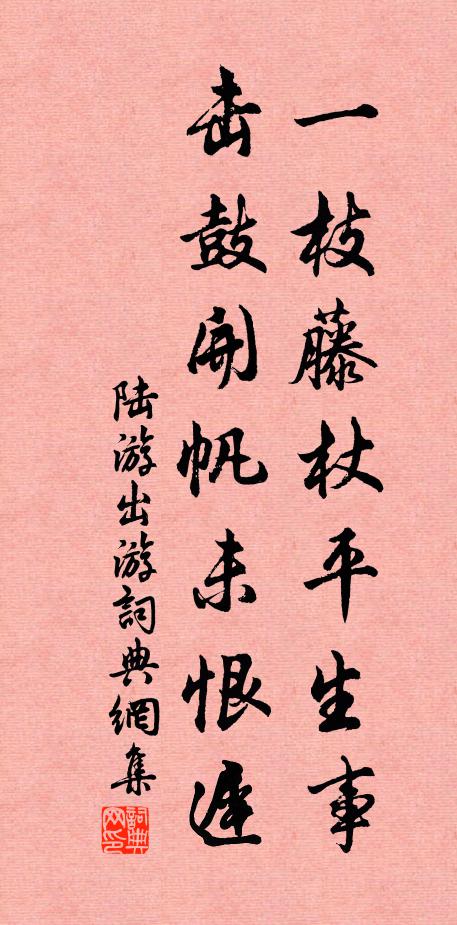 一枝藤杖平生事
击鼓开帆未恨迟
陆游出游詞典網集
詞典网印